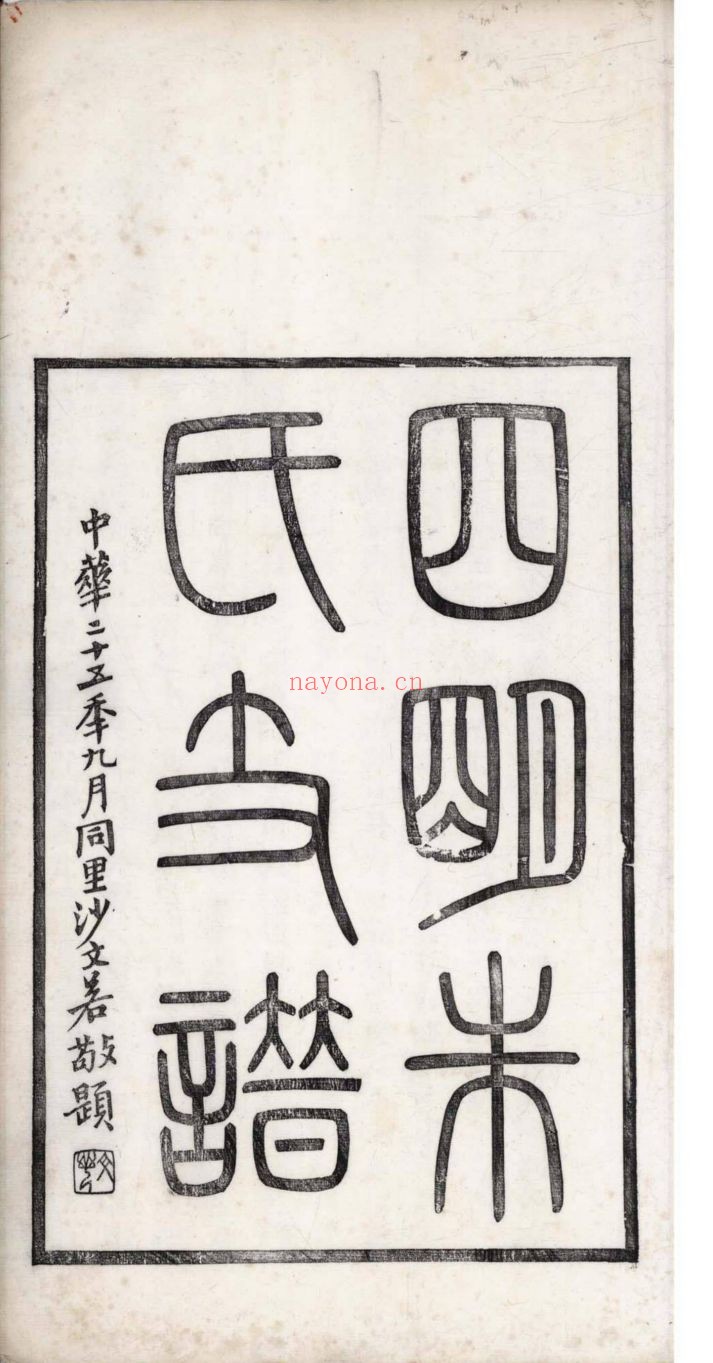 四明朱
氏支譜
中華二十五年九月同里沙文若敬題
文若
nayona.cn